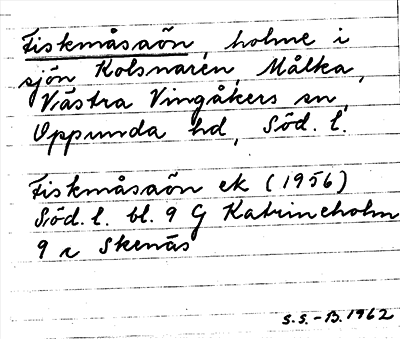 Fiskmåsaön, holme i
sjön Kolsnaren, Målka,
Västra Vingåkers sn,
Oppunda hd, Söd. l.
Fiskmåsaön ek (1956)
Söd. l. bl. 9 G Katrineholm
9 r Skenäs
S.S.-B. 1962